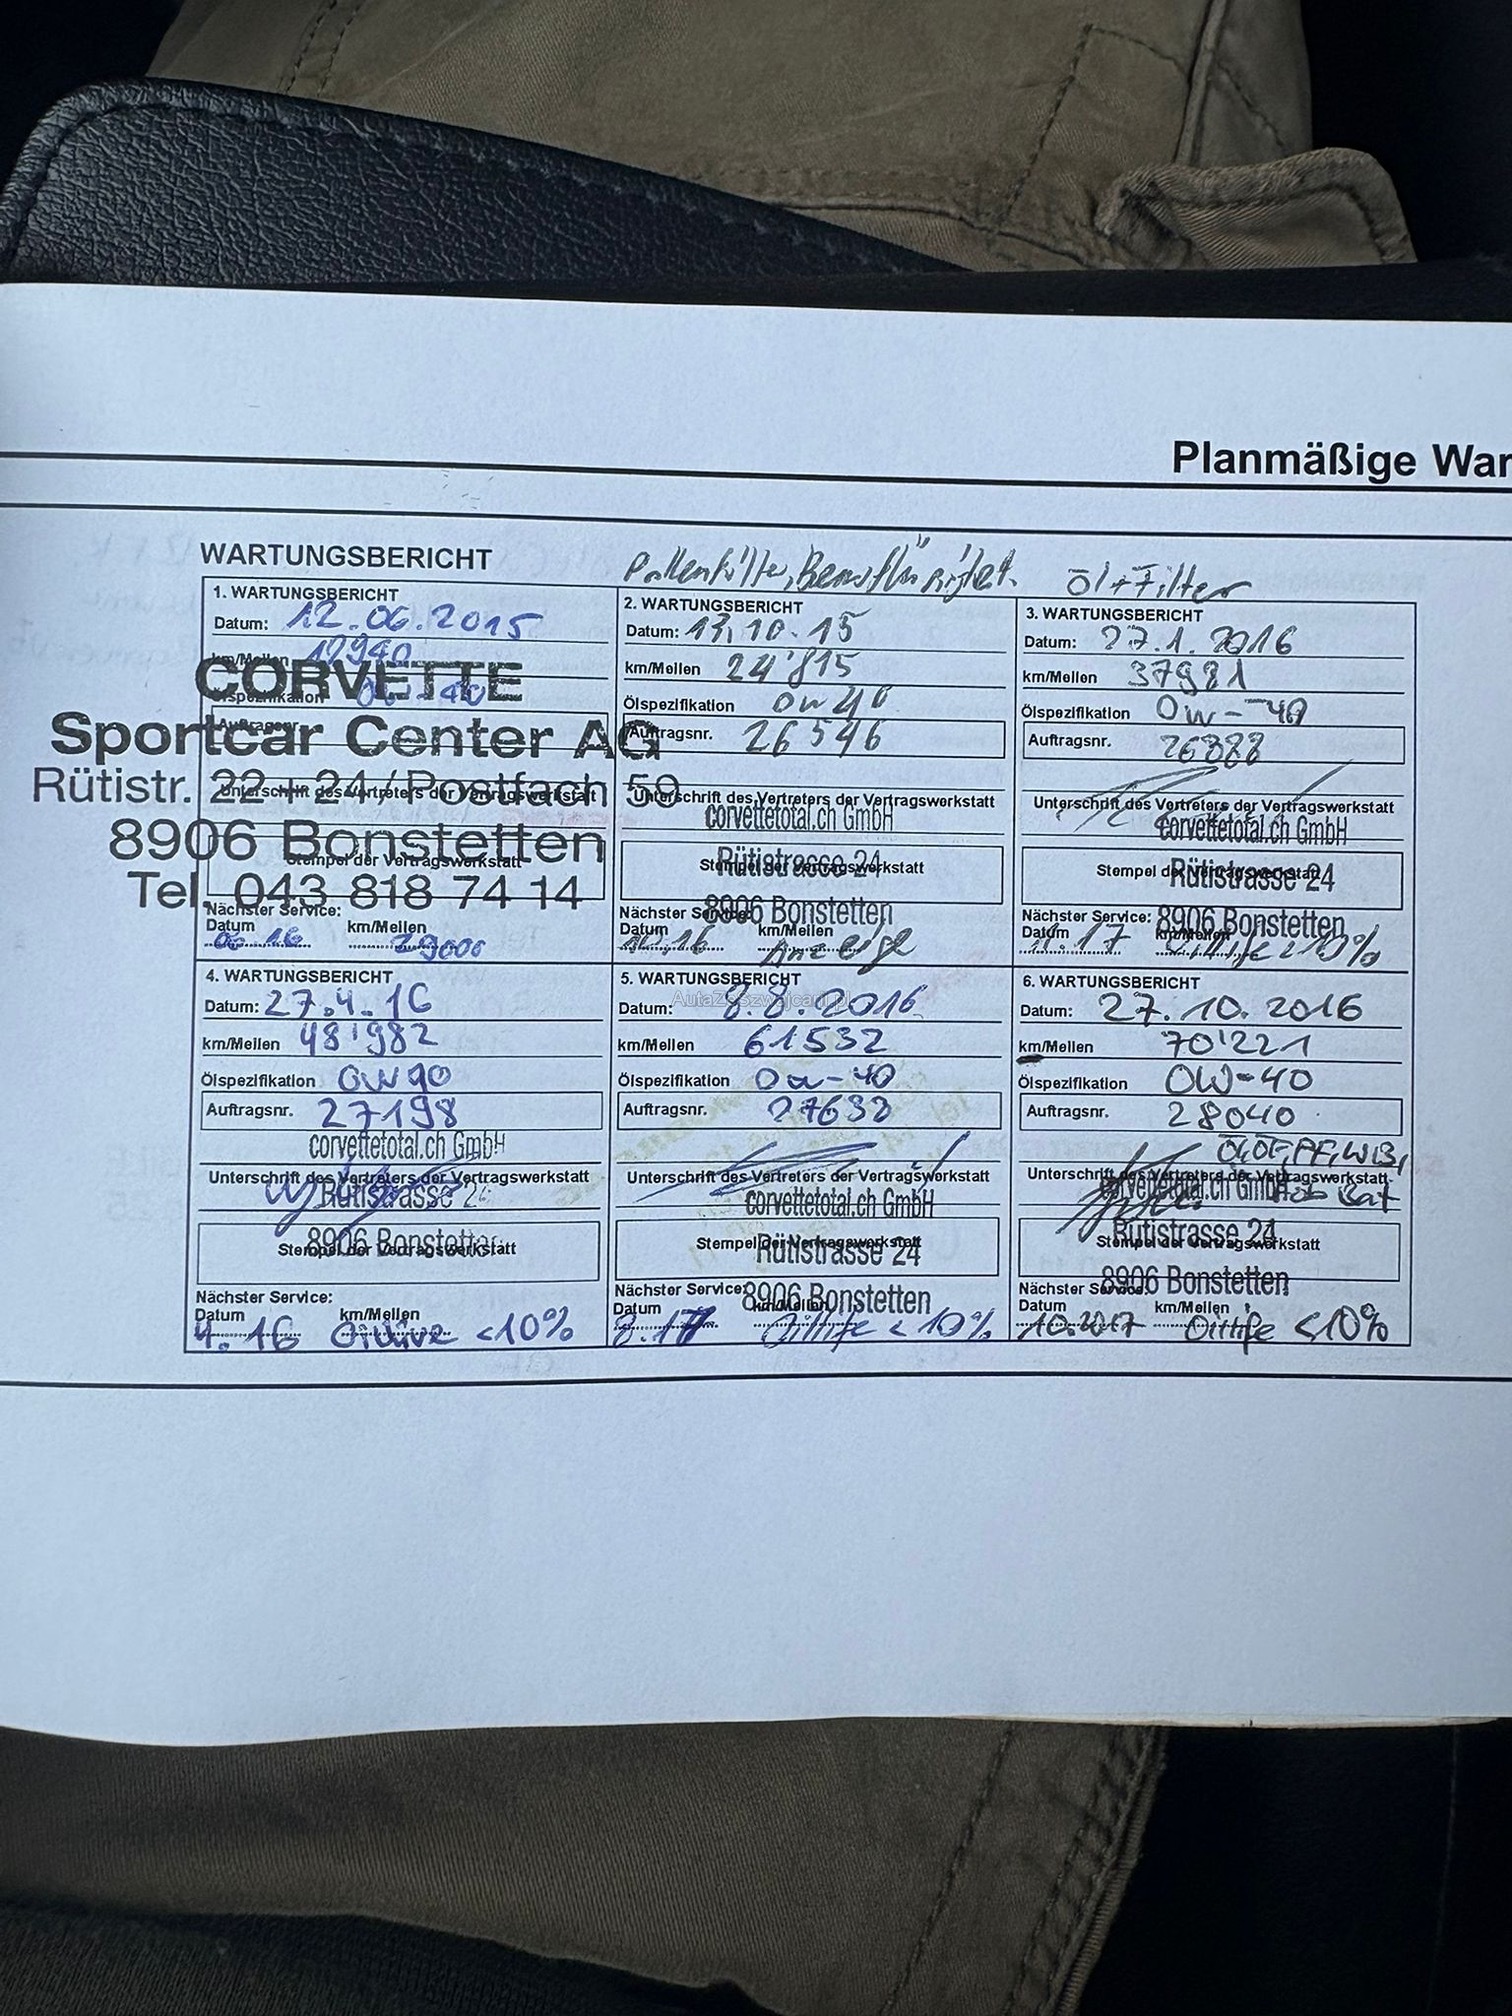 Planmäßige War
WARTUNGSBERICHT
Öl+Filter
1. WARTUNGSBERICHT
Datum: 12.06.2015
km/Meilen
Ölspezifikation
Auftragsnr.
CORVETTE
Sportcar Center AG
Rütistr. 22+24 / Postfach 59
8906 Bonstetten
Tel. 043 818 74 14
Unterschrift des Vertreters der Vertragswerkstatt
Stempel der Vertragswerkstatt
Nächster Service:
Datum km/Meilen
06.16
2. WARTUNGSBERICHT
Datum: 13.10.15
km/Meilen 24'815
Ölspezifikation 0w40
Auftragsnr. 26546
Unterschrift des Vertreters der Vertragswerkstatt
corvettetotal.ch GmbH
Stempel der Vertragswerkstatt
Rütistrasse 24
8906 Bonstetten
Nächster Service:
Datum km/Meilen
Anzeige
3. WARTUNGSBERICHT
Datum: 27.1.2016
km/Meilen 37981
Ölspezifikation 0w-40
Auftragsnr. 26888
Unterschrift des Vertreters der Vertragswerkstatt
corvettetotal.ch GmbH
Stempel der Vertragswerkstatt
Rütistrasse 24
8906 Bonstetten
Nächster Service:
Datum km/Meilen
4. WARTUNGSBERICHT
Datum: 27.4.16
km/Meilen 48'982
Ölspezifikation 0W40
Auftragsnr. 27198
corvettetotal.ch GmbH
Unterschrift des Vertreters der Vertragswerkstatt
Rütistrasse 24
8906 Bonstetten
Stempel der Vertragswerkstatt
Nächster Service:
Datum km/Meilen
4.16 <10%
5. WARTUNGSBERICHT
AutaZeSzwajcarii.pl
Datum: 8.8.2016
km/Meilen 61532
Ölspezifikation 0w-40
Auftragsnr. 27632
Unterschrift des Vertreters der Vertragswerkstatt
corvettetotal.ch GmbH
Stempel der Vertragswerkstatt
Rütistrasse 24
8906 Bonstetten
Nächster Service:
Datum km/Meilen
8.17 Oillife <10%
6. WARTUNGSBERICHT
Datum: 27.10.2016
km/Meilen 70'221
Ölspezifikation 0W-40
Auftragsnr. 28040
Unterschrift des Vertreters der Vertragswerkstatt
corvettetotal.ch GmbH
Rütistrasse 24
Stempel der Vertragswerkstatt
8906 Bonstetten
Nächster Service:
Datum km/Meilen
10.2017 Oillife <10%